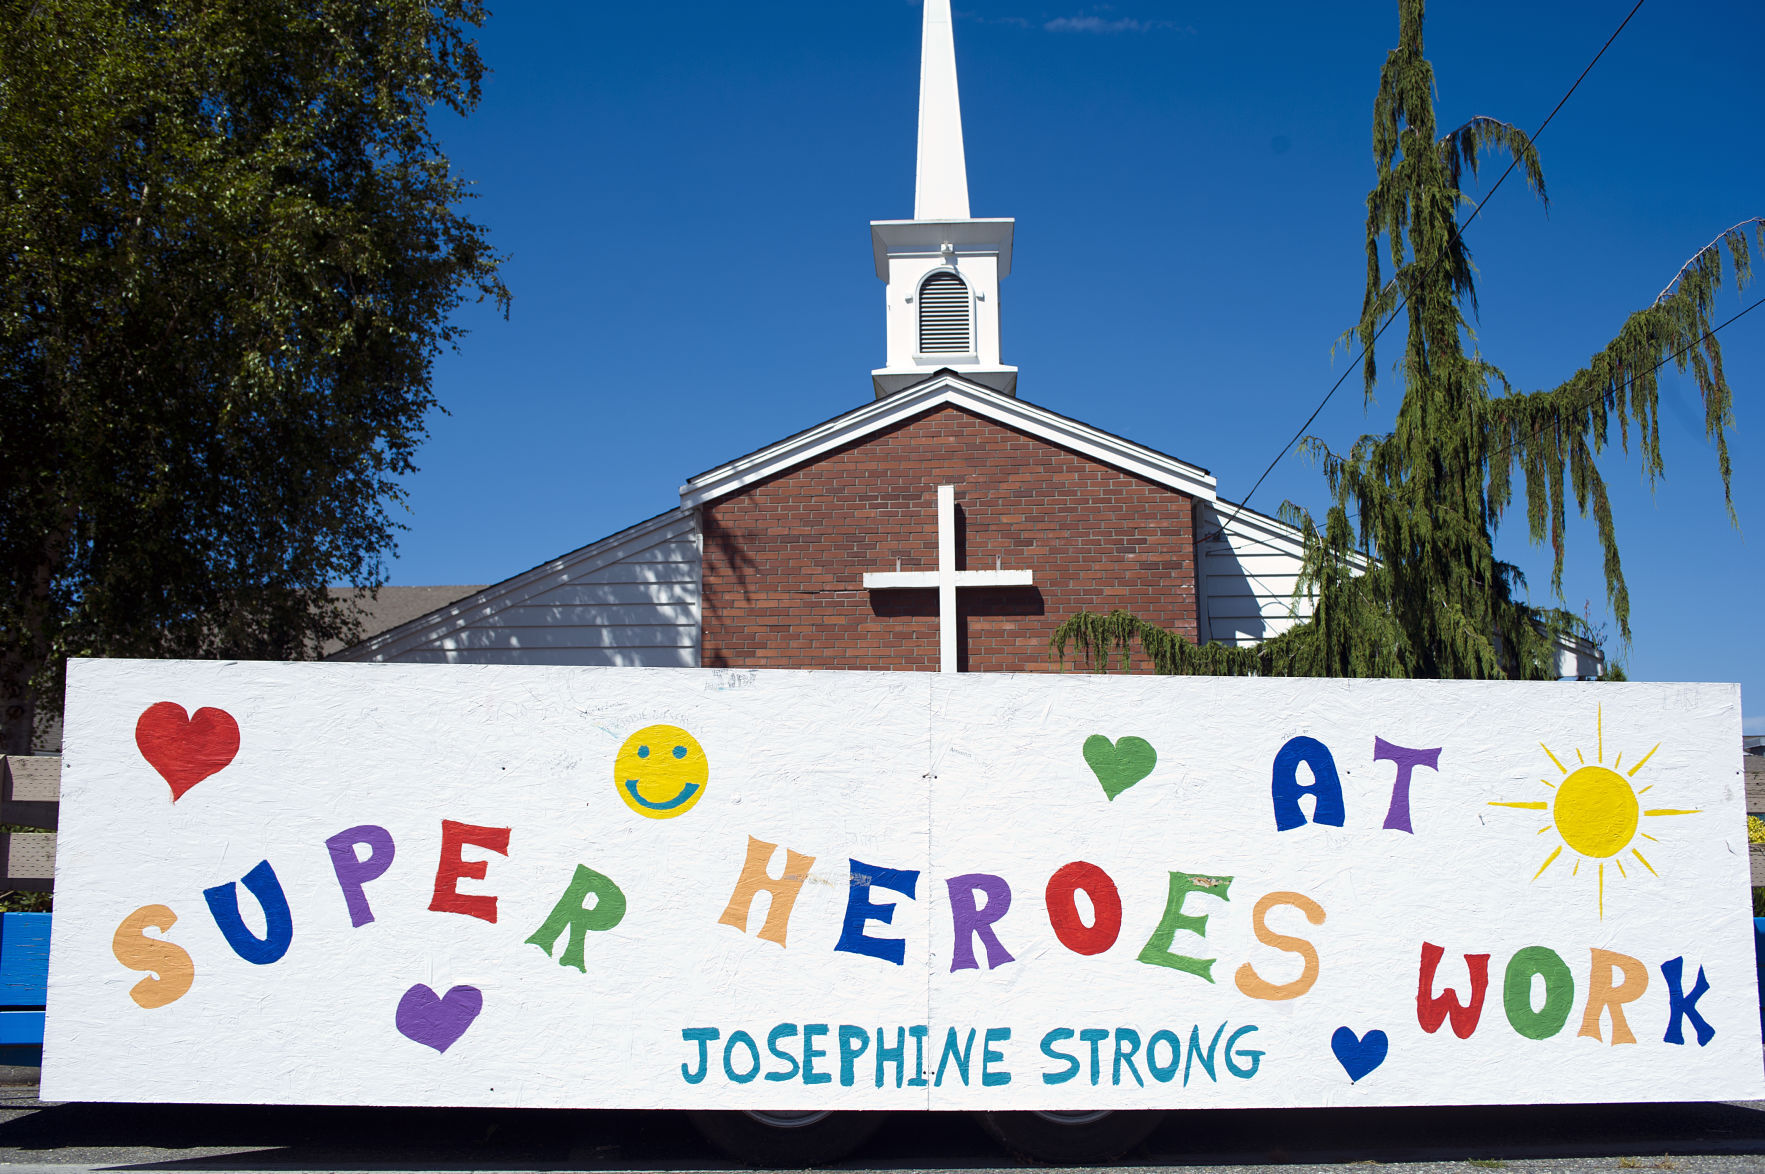 SUPER HEROES AT WORK
JOSEPHINE STRONG